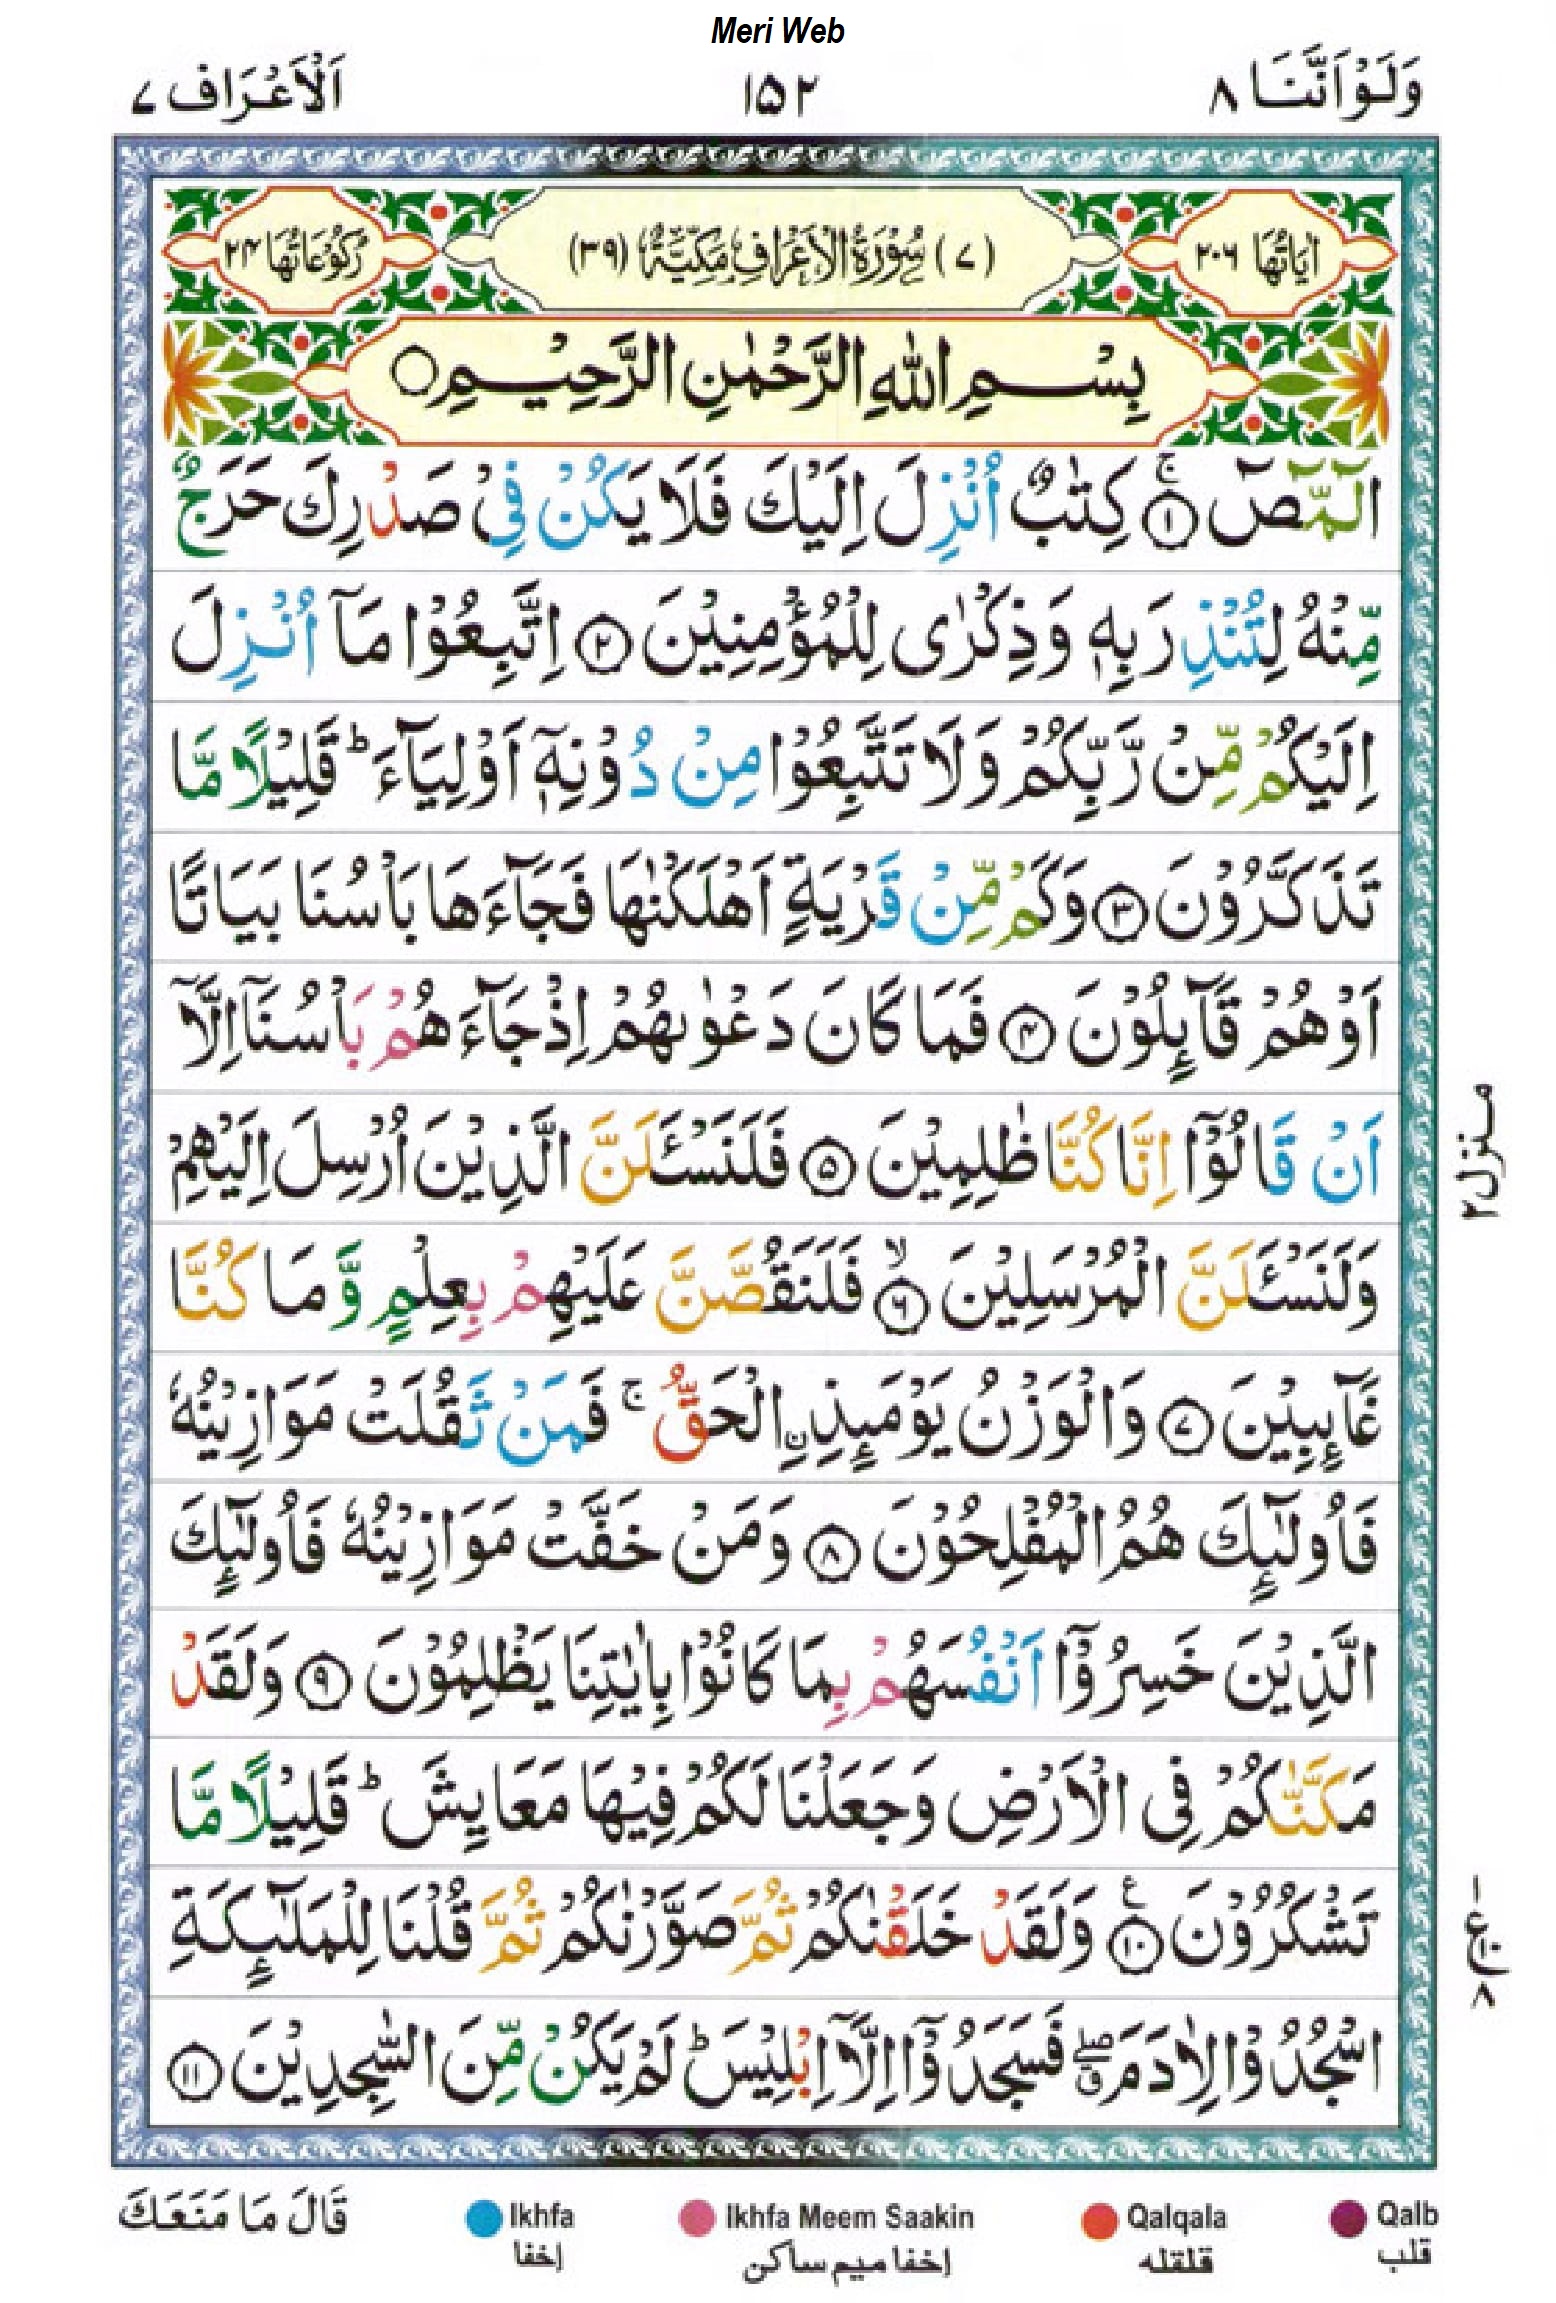 Meri Web
وَلَوْ اَنَّنَا ٨
١٥٢
اَلْاَعْرَاف ٧
اٰيَاتُهَا ٢٠٦
(٧) سُوْرَةُ الْاَعْرَافِ مَكِّيَّةٌ (٣٩)
رُكُوْعَاتُهَا ٢٤
بِسْمِ اللّٰهِ الرَّحْمٰنِ الرَّحِيْمِ ○
الٓمّٓصٓ ۚ﴿١﴾ كِتٰبٌ اُنْزِلَ اِلَيْكَ فَلَا يَكُنْ فِيْ صَدْرِكَ حَرَجٌ
مِّنْهُ لِتُنْذِرَ بِهٖ وَذِكْرٰى لِلْمُؤْمِنِيْنَ ﴿٢﴾ اِتَّبِعُوْا مَآ اُنْزِلَ
اِلَيْكُمْ مِّنْ رَّبِّكُمْ وَلَا تَتَّبِعُوْا مِنْ دُوْنِهٖٓ اَوْلِيَآءَ ؕ قَلِيْلًا مَّا
تَذَكَّرُوْنَ ﴿٣﴾ وَكَمْ مِّنْ قَرْيَةٍ اَهْلَكْنٰهَا فَجَآءَهَا بَاْسُنَا بَيَاتًا
اَوْ هُمْ قَآئِلُوْنَ ﴿٤﴾ فَمَا كَانَ دَعْوٰىهُمْ اِذْ جَآءَهُمْ بَاْسُنَآ اِلَّآ
اَنْ قَالُوْٓا اِنَّا كُنَّا ظٰلِمِيْنَ ﴿٥﴾ فَلَنَسْـَٔلَنَّ الَّذِيْنَ اُرْسِلَ اِلَيْهِمْ
وَلَنَسْـَٔلَنَّ الْمُرْسَلِيْنَ ۙ﴿٦﴾ فَلَنَقُصَّنَّ عَلَيْهِمْ بِعِلْمٍ وَّمَا كُنَّا
غَآئِبِيْنَ ﴿٧﴾ وَالْوَزْنُ يَوْمَئِذِ ۨالْحَقُّ ۚ فَمَنْ ثَقُلَتْ مَوَازِيْنُهٗ
فَاُولٰٓئِكَ هُمُ الْمُفْلِحُوْنَ ﴿٨﴾ وَمَنْ خَفَّتْ مَوَازِيْنُهٗ فَاُولٰٓئِكَ
الَّذِيْنَ خَسِرُوْٓا اَنْفُسَهُمْ بِمَا كَانُوْا بِاٰيٰتِنَا يَظْلِمُوْنَ ﴿٩﴾ وَلَقَدْ
مَكَّنّٰكُمْ فِى الْاَرْضِ وَجَعَلْنَا لَكُمْ فِيْهَا مَعَايِشَ ؕ قَلِيْلًا مَّا
تَشْكُرُوْنَ ﴿١٠﴾ ع وَلَقَدْ خَلَقْنٰكُمْ ثُمَّ صَوَّرْنٰكُمْ ثُمَّ قُلْنَا لِلْمَلٰٓئِكَةِ
اسْجُدُوْا لِاٰدَمَ ۖق فَسَجَدُوْٓا اِلَّآ اِبْلِيْسَ ؕ لَمْ يَكُنْ مِّنَ السّٰجِدِيْنَ ﴿١١﴾
منزل ٢
١ ع ١٠ ٨
قَالَ مَا مَنَعَكَ
Ikhfa
إخفا
Ikhfa Meem Saakin
إخفا ميم ساكن
Qalqala
قلقله
Qalb
قلب